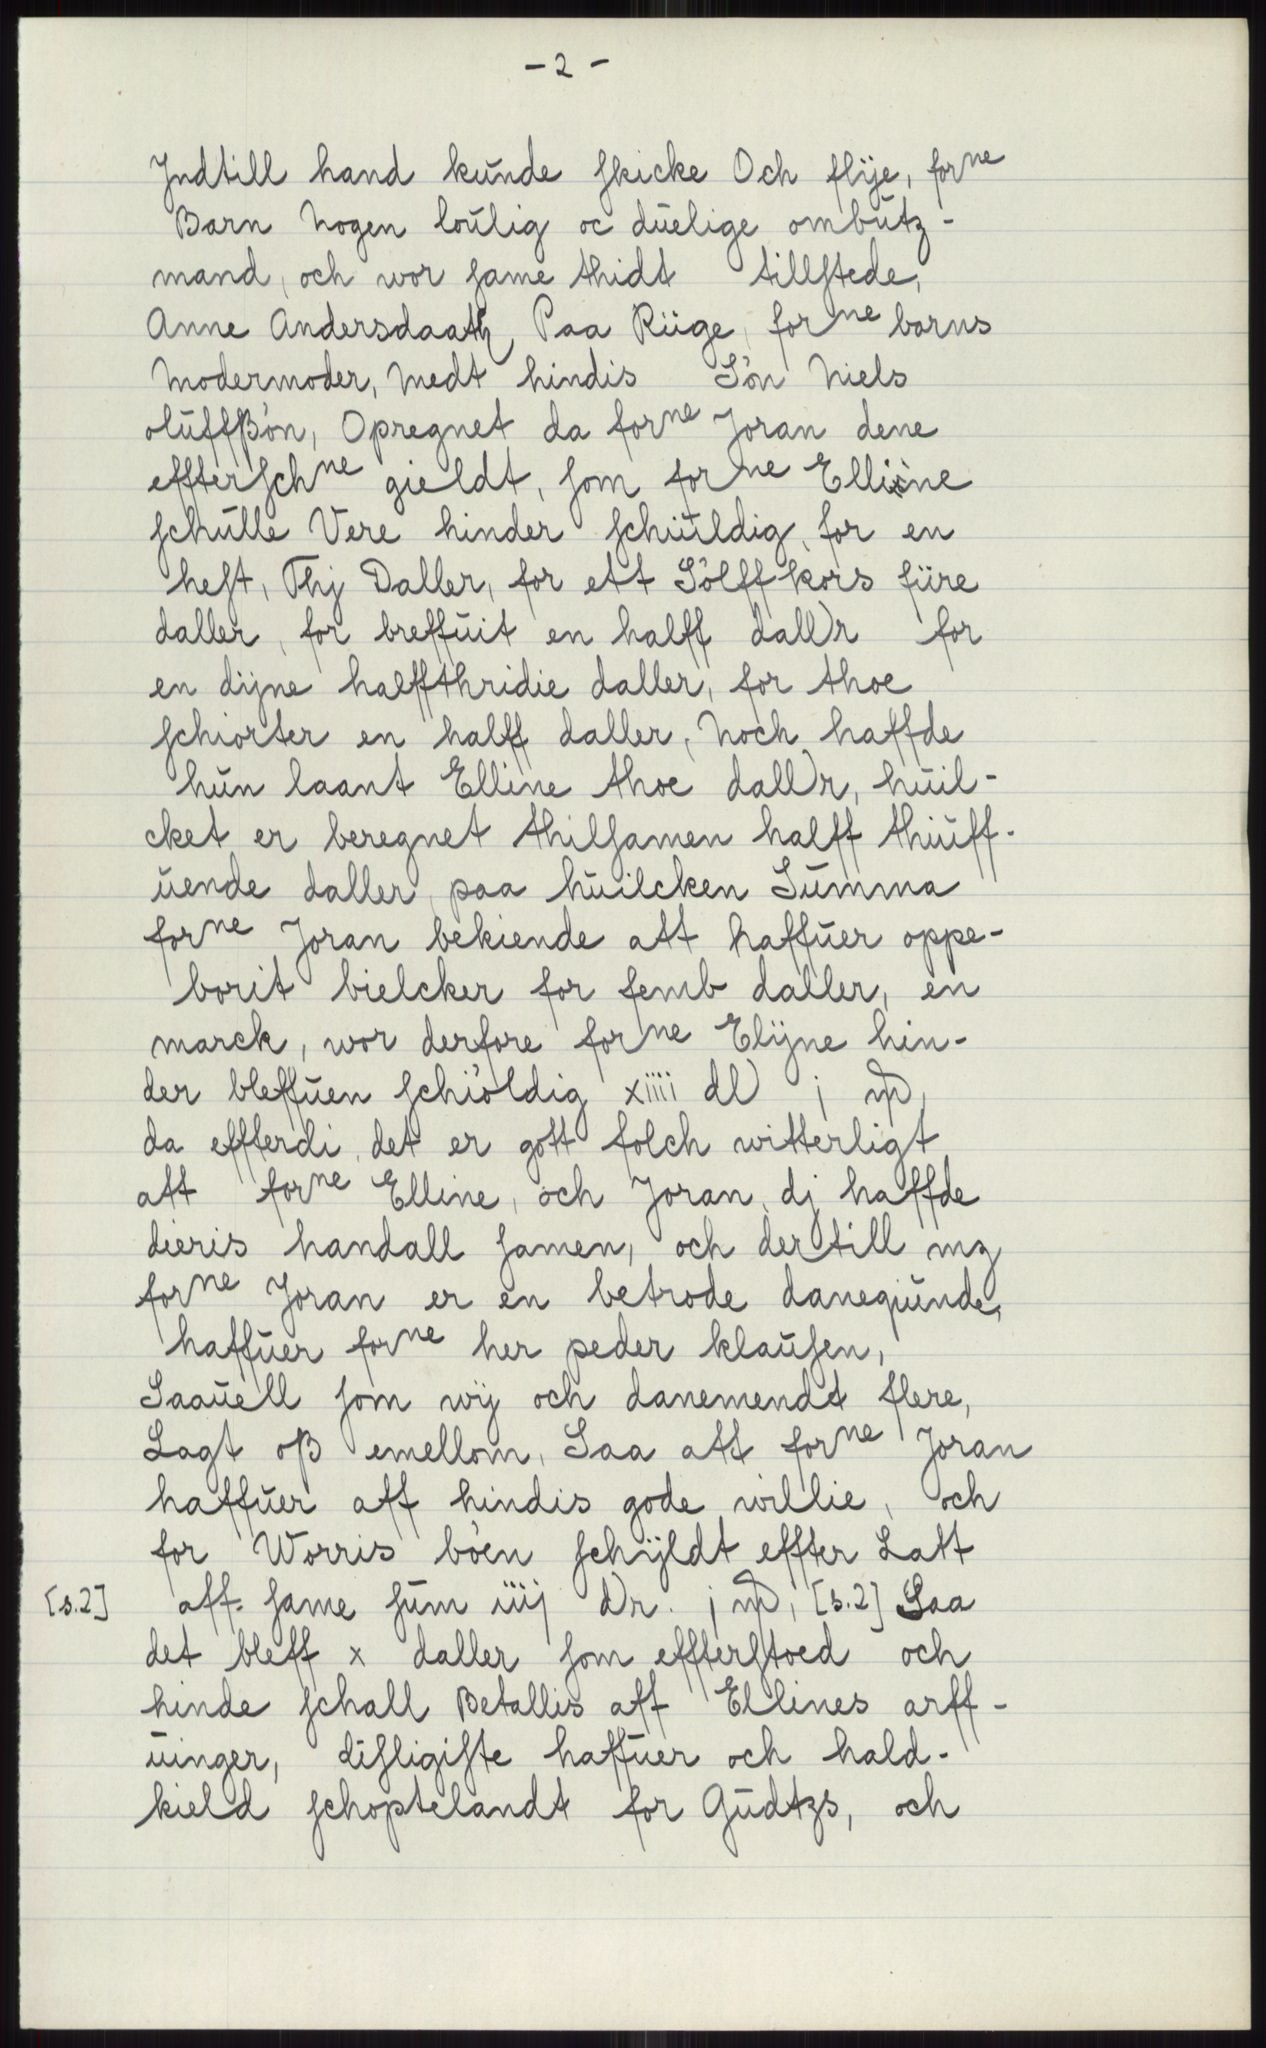 - 2 -
Jndtill hand kunde skicke Och flÿe, forne
Barn Nogen loulig oc duelige ombutz-
mand, och wor same thidt tillstede,
Anne Andersdaath, Paa Riige, forne barns
Modermoder, Medt hindis Søn Niels
oluffßøn, Opregnet da forne Joran dene
effterschne gieldt, som forne Elline
schulle Vere hinder schiuldig, for en
hest, Thj Daller, for ett Sølff kors fiire
daller, for breffuit en halff dallr for
en dÿne halffthridie daller, for thoe
schiorter en halff daller, Noch haffde
hun laant Elline thoe dallr, huil-
cket er beregnet thilsamen halff thiuff-
uende daller, paa huilcken Summa
forne Joran bekiende att haffuer oppe-
borit bielcker for femb daller, en
marck, wor derfore forne Elÿne hin-
der bleffuen schiøldig xiiii dl j mp,
da effterdi, det er gott folch witterligt
att forne Elline, och Joran, dj haffde
dieris handall samen, och dertill mz
forne Joran er en betrode danequinde,
haffuer forne her peder klausen,
Saauell som wÿ och danemendt flere,
Lagt oß emellom, Saa att forne Joran
haffuer aff hindis gode willie, och
for Worris bøen schÿldt effter Latt
[s.2] aff same sum iiij dr. j mp, [s.2] Saa
det bleff x daller som effterstoed och
hinde schall Betallis aff Ellines arff-
uinger, disligiste haffuer och hald-
kield schoptelandt for Gudtzs, och